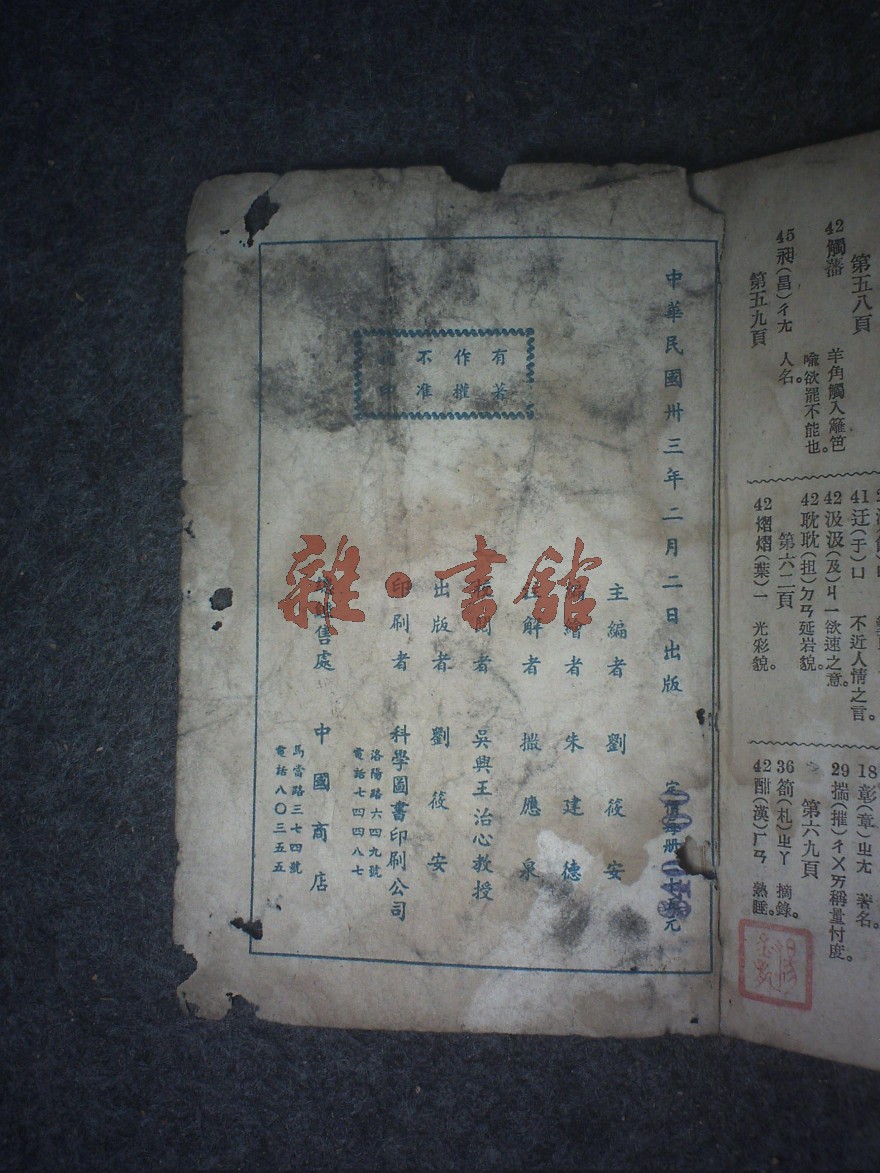 第五八頁
42觸藩 羊角觸入籬笆
喩欲罷不能也。
45昶(昌)ㄔㄤ 人名。
第五九頁
41迂(于)ㄩ 不近人情之言。
42汲汲(及)ㄐㄧ欲速之意。
42耽耽(担)ㄉㄢ延岩貌。
第六二頁
42熠熠(葉)ㄧ 光彩貌。
18彰(章)ㄓㄤ 著名。
29揣(摧)ㄔㄨㄞ稱量忖度。
第六九頁
36箚(札)ㄓㄚ 摘錄。
42酣(漢)ㄏㄢ 熟睡。
中華民國卅三年二月二日出版 定價每册 元
有著
作權
不准
印
主編者 劉筱安
編繪者 朱建德
註解者 撒應泉
校閱者 吳興王治心教授
出版者 劉筱安
印刷者 科學圖書印刷公司
洛陽路六四九號
電話七四四八七
總經售處 中國商店
馬當路三七四號
電話八〇三五五
雜·書館